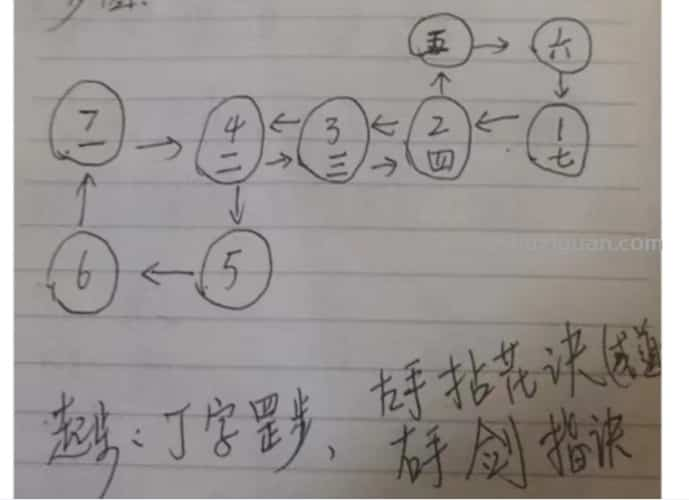 五 六
7 4 3 2 1
一 二 三 四 七
6 5
起步：丁字罡步、左手拈花诀
右手剑指诀